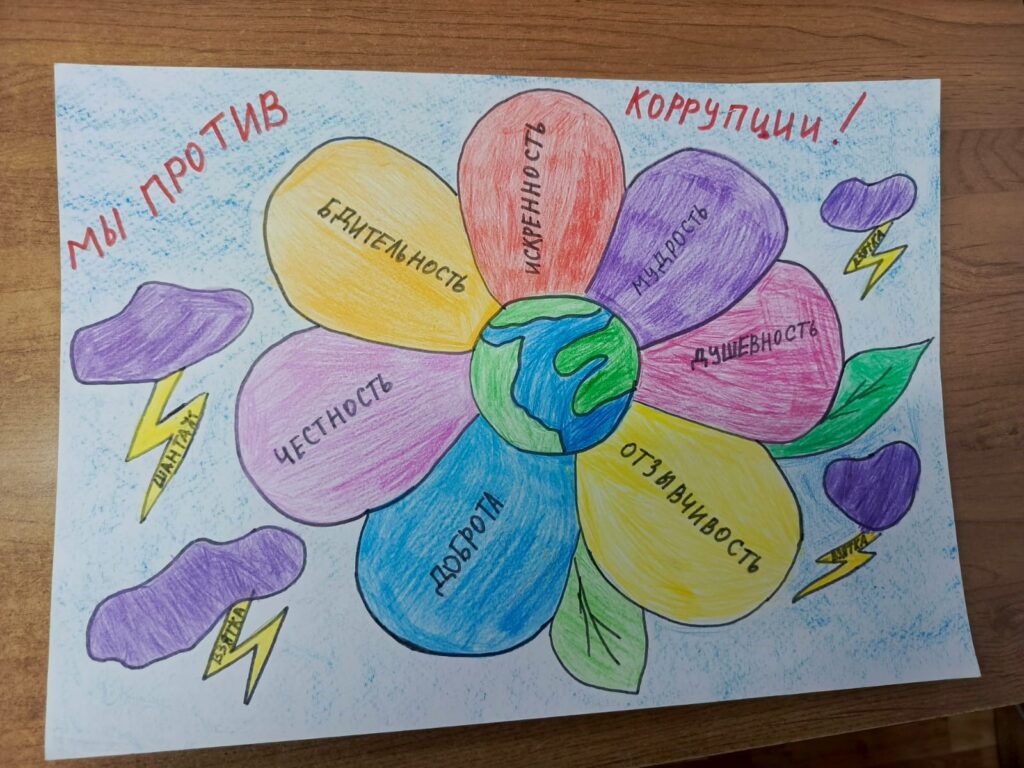 МЫ ПРОТИВ
КОРРУПЦИИ!
БДИТЕЛЬНОСТЬ
ИСКРЕННОСТЬ
МУДРОСТЬ
ДУШЕВНОСТЬ
ОТЗЫВЧИВОСТЬ
ДОБРОТА
ЧЕСТНОСТЬ
ШАНТАЖ
ВЗЯТКА
ВЗЯТКА
ВЗЯТКА